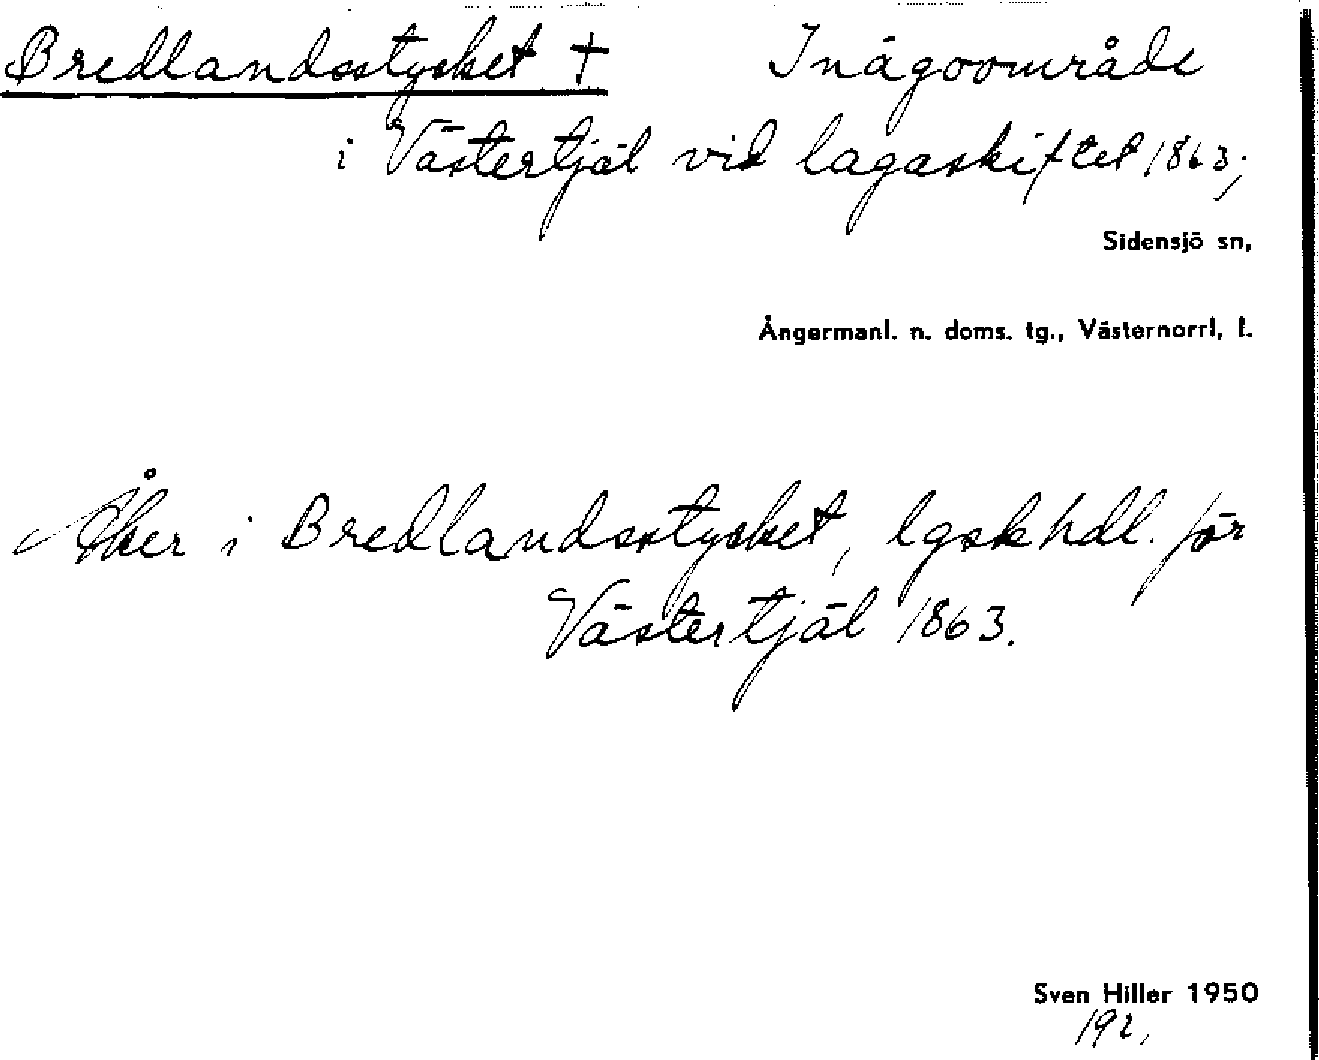 Bredlandsstycket † Inägoområde
i Västertjäl vid lagaskiftet 1863;
Sidensjö sn,
Ångermanl. n. doms. tg., Västernorrl, l.
Åker i Bredlandsstycket, lgskhdl. för
Västertjäl 1863.
Sven Hiller 1950
192,